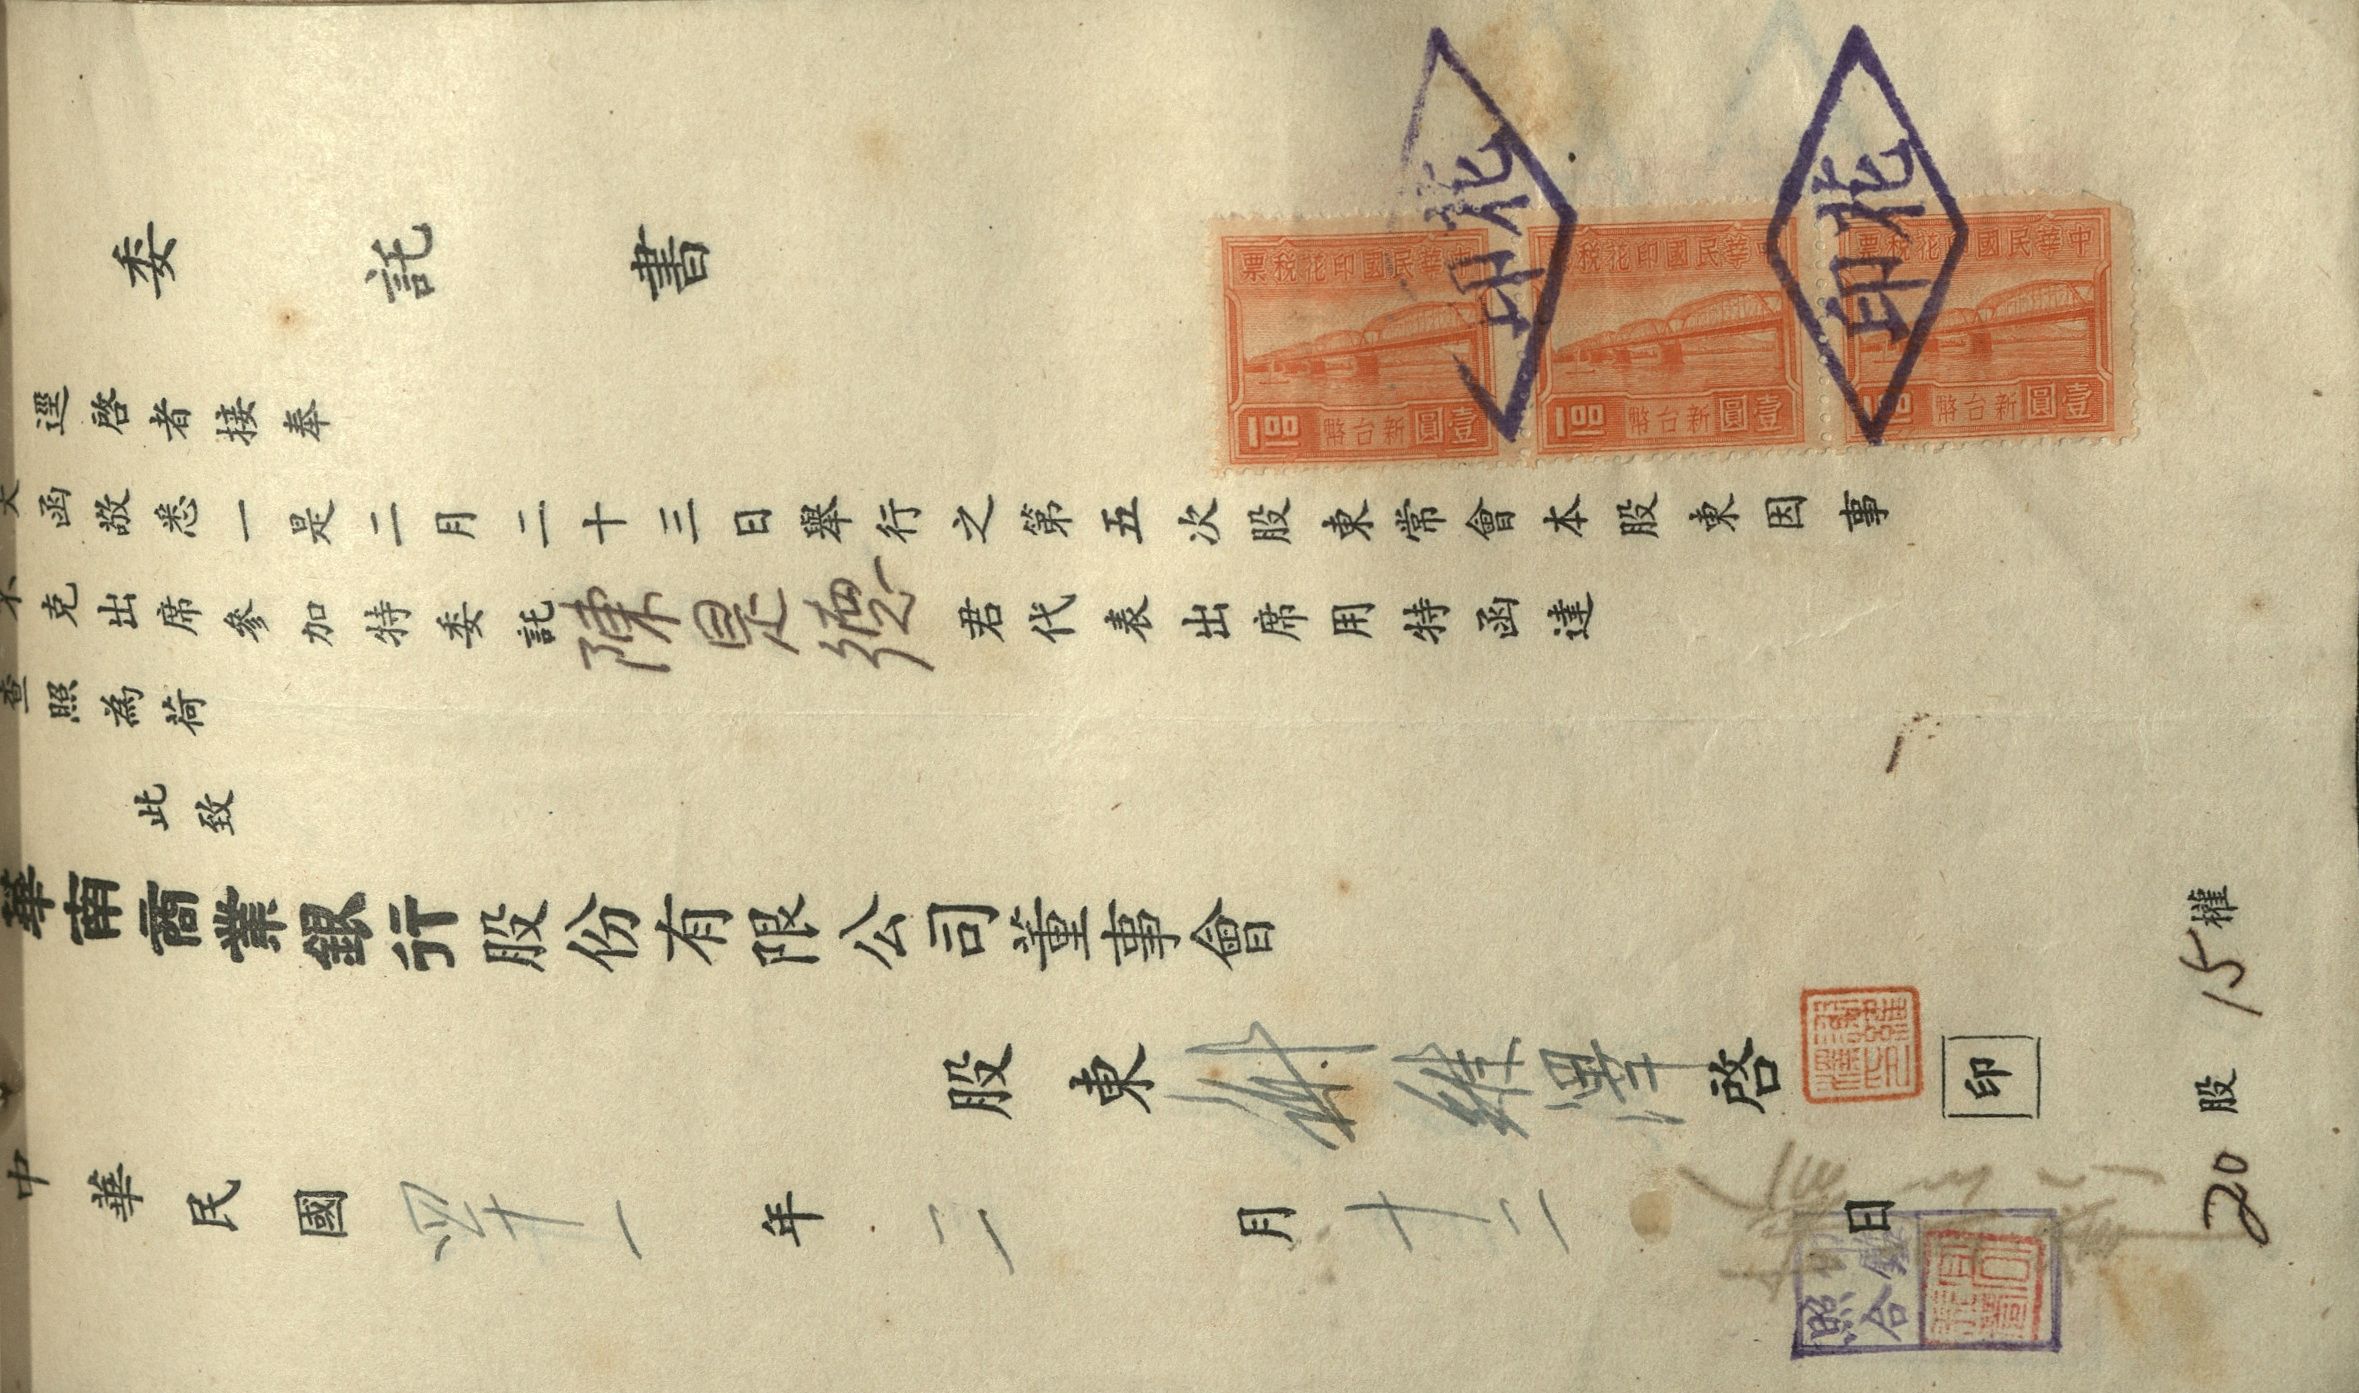 委託書
逕啓者接奉
大函敬悉一是二月二十三日舉行之第五次股東常會本股東因事
不克出席參加特委託陳是德君代表出席用特函達
查照為荷
此致
華南商業銀行股份有限公司董事會
股東謝維澤啓
印
中華民國四十一年二月十二日
20股 15權
中華民國印花稅票
壹圓 新台幣 100
中華民國印花稅票
壹圓 新台幣 100
中華民國印花稅票
壹圓 新台幣 100
印花
印花